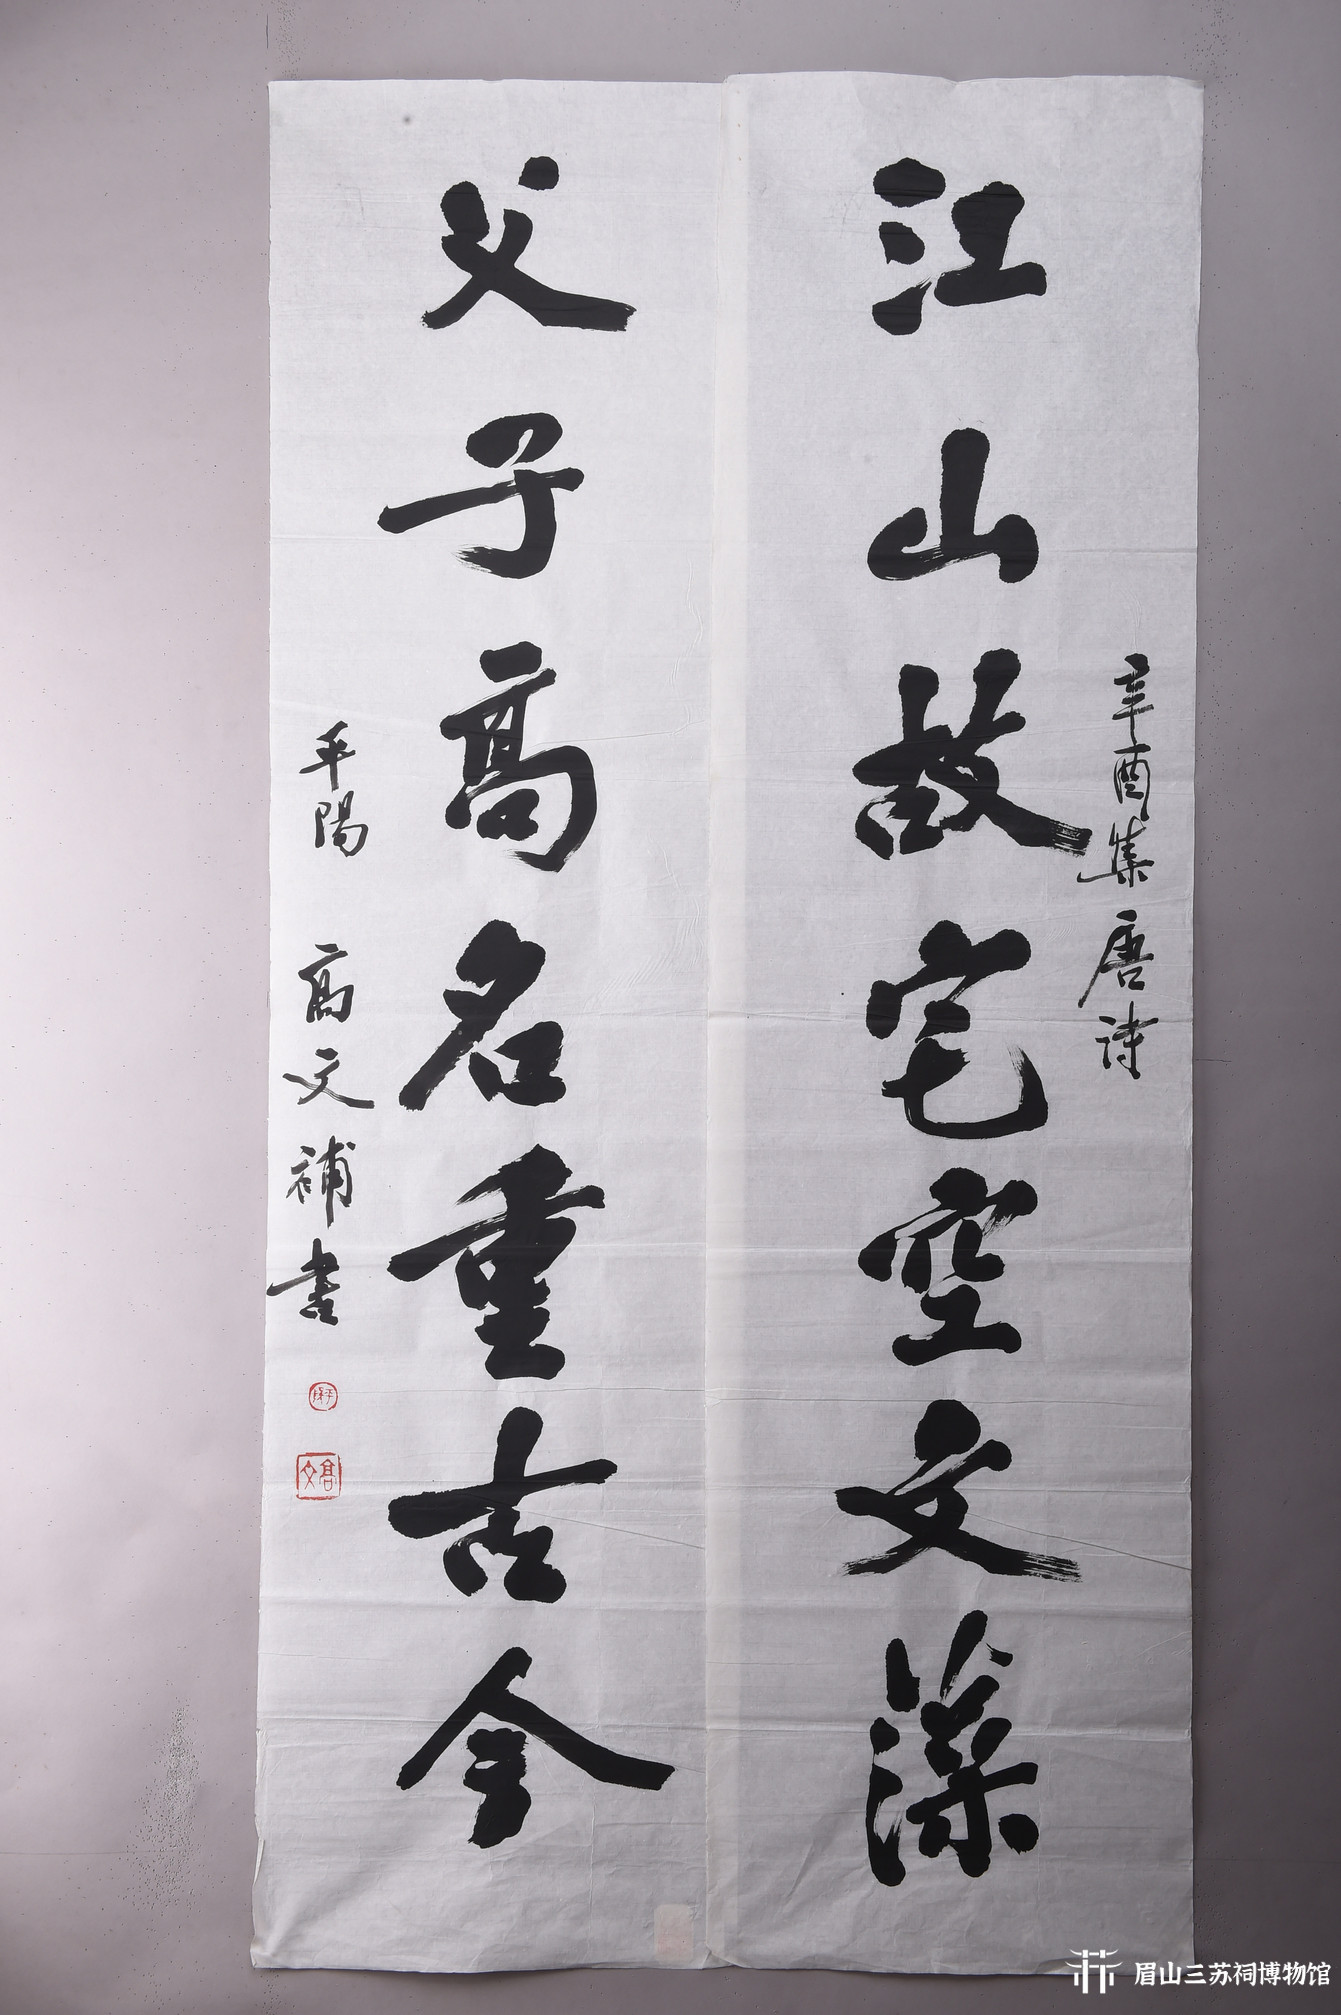 江山故宅空文藻
辛酉集唐诗
父子高名重古今
平陽 高文補书
高文
眉山三苏祠博物馆